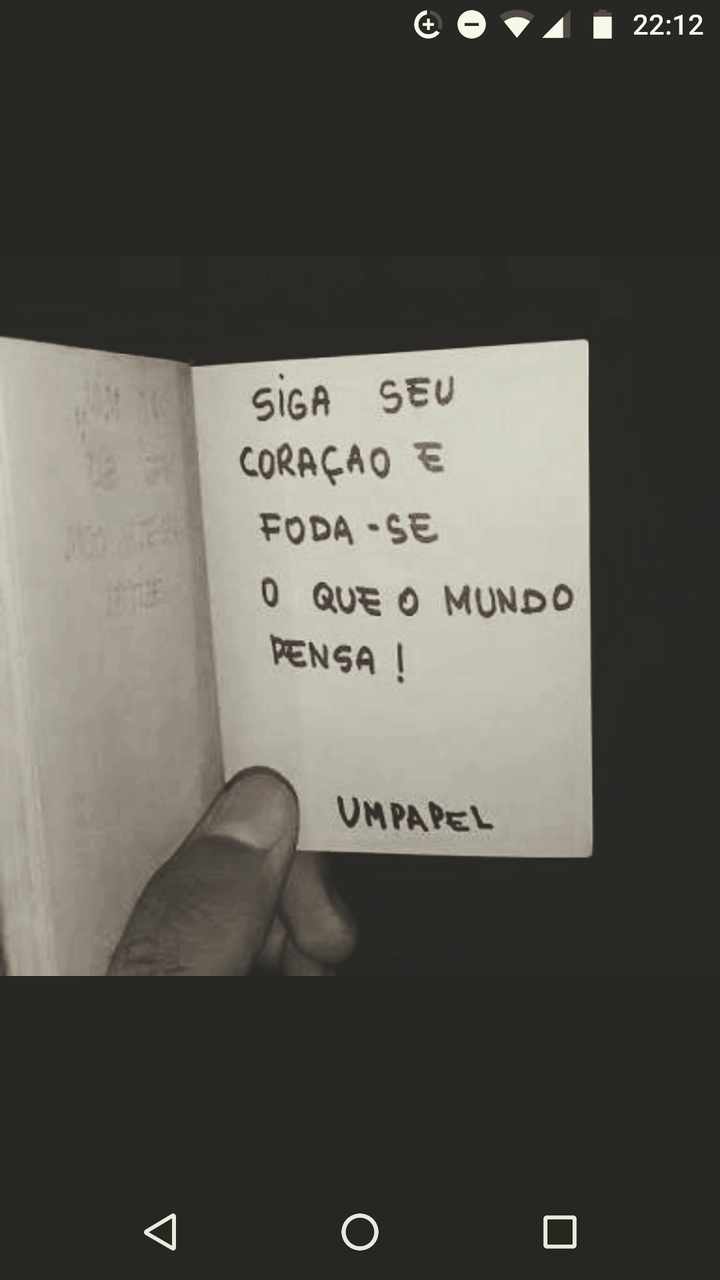 22:12
SiGA SEU
CORAÇAO E
FODA-SE
O QUE O MUNDO
PENSA!
UMPAPEL